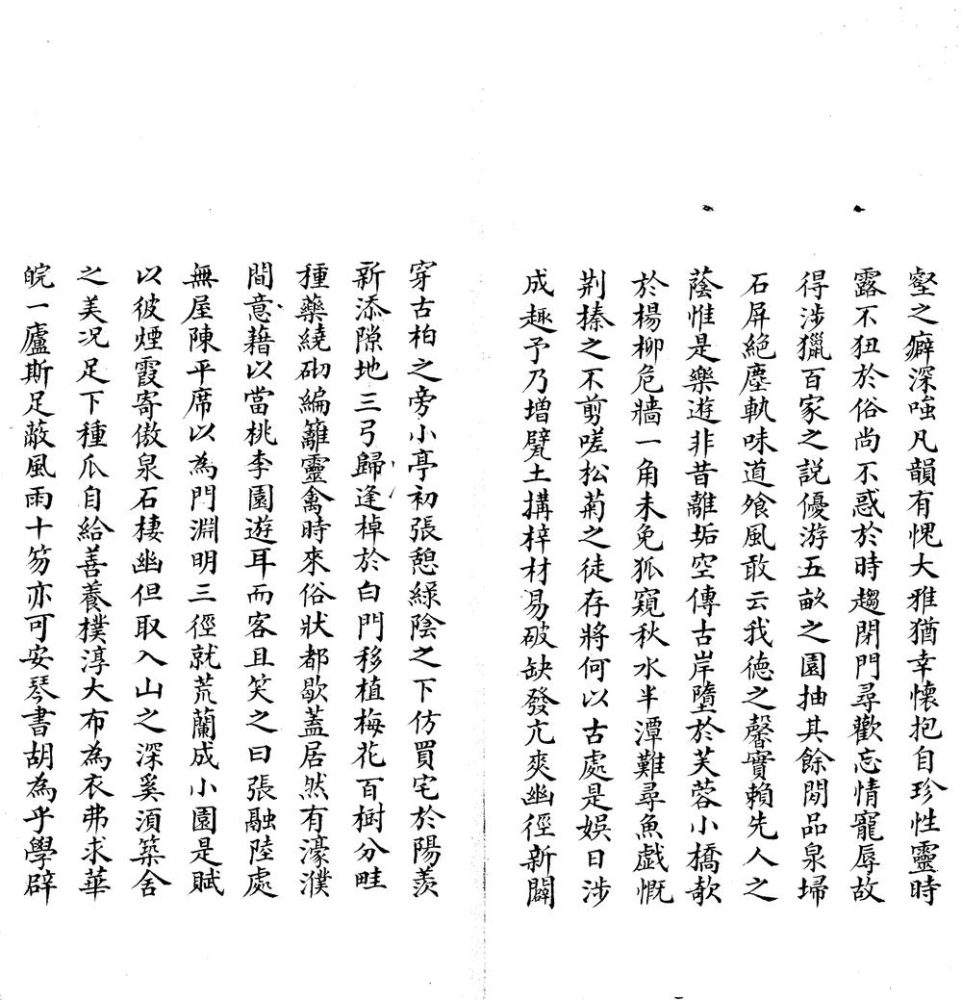 壑之癖深嗤凡韻有愧大雅猶幸懷抱自珍性靈時
露不狃於俗尚不惑於時趨閉門尋歡忘情寵辱故
得涉獵百家之説優游五畝之園抽其餘閒品泉埽
石屏絶塵軌味道飱風敢云我徳之馨實賴先人之
蔭惟是樂遊非昔離垢空傳古岸墮於芙蓉小橋欹
於楊柳危牆一角未免狐窺秋水半潭難尋魚戯慨
荆榛之不剪嗟松菊之徒存將何以古處是娛日涉
成趣予乃増甓土搆梓材易破缺發亢爽幽徑新闢
穿古柏之旁小亭初張憩緑陰之下仿買宅於陽羨
新添隙地三弓歸逢棹於白門移植梅花百樹分畦
種藥繞砌編籬靈禽時來俗狀都歇蓋居然有濠濮
間意藉以當桃李園遊耳而客且笑之曰張融陸處
無屋陳平席以為門淵明三徑就荒蘭成小園是賦
以彼煙霞寄傲泉石棲幽但取入山之深奚湏築舍
之美况足下種瓜自給善養樸淳大布為衣弗求華
皖一廬斯足蔽風雨十笏亦可安琴書胡為乎學辟